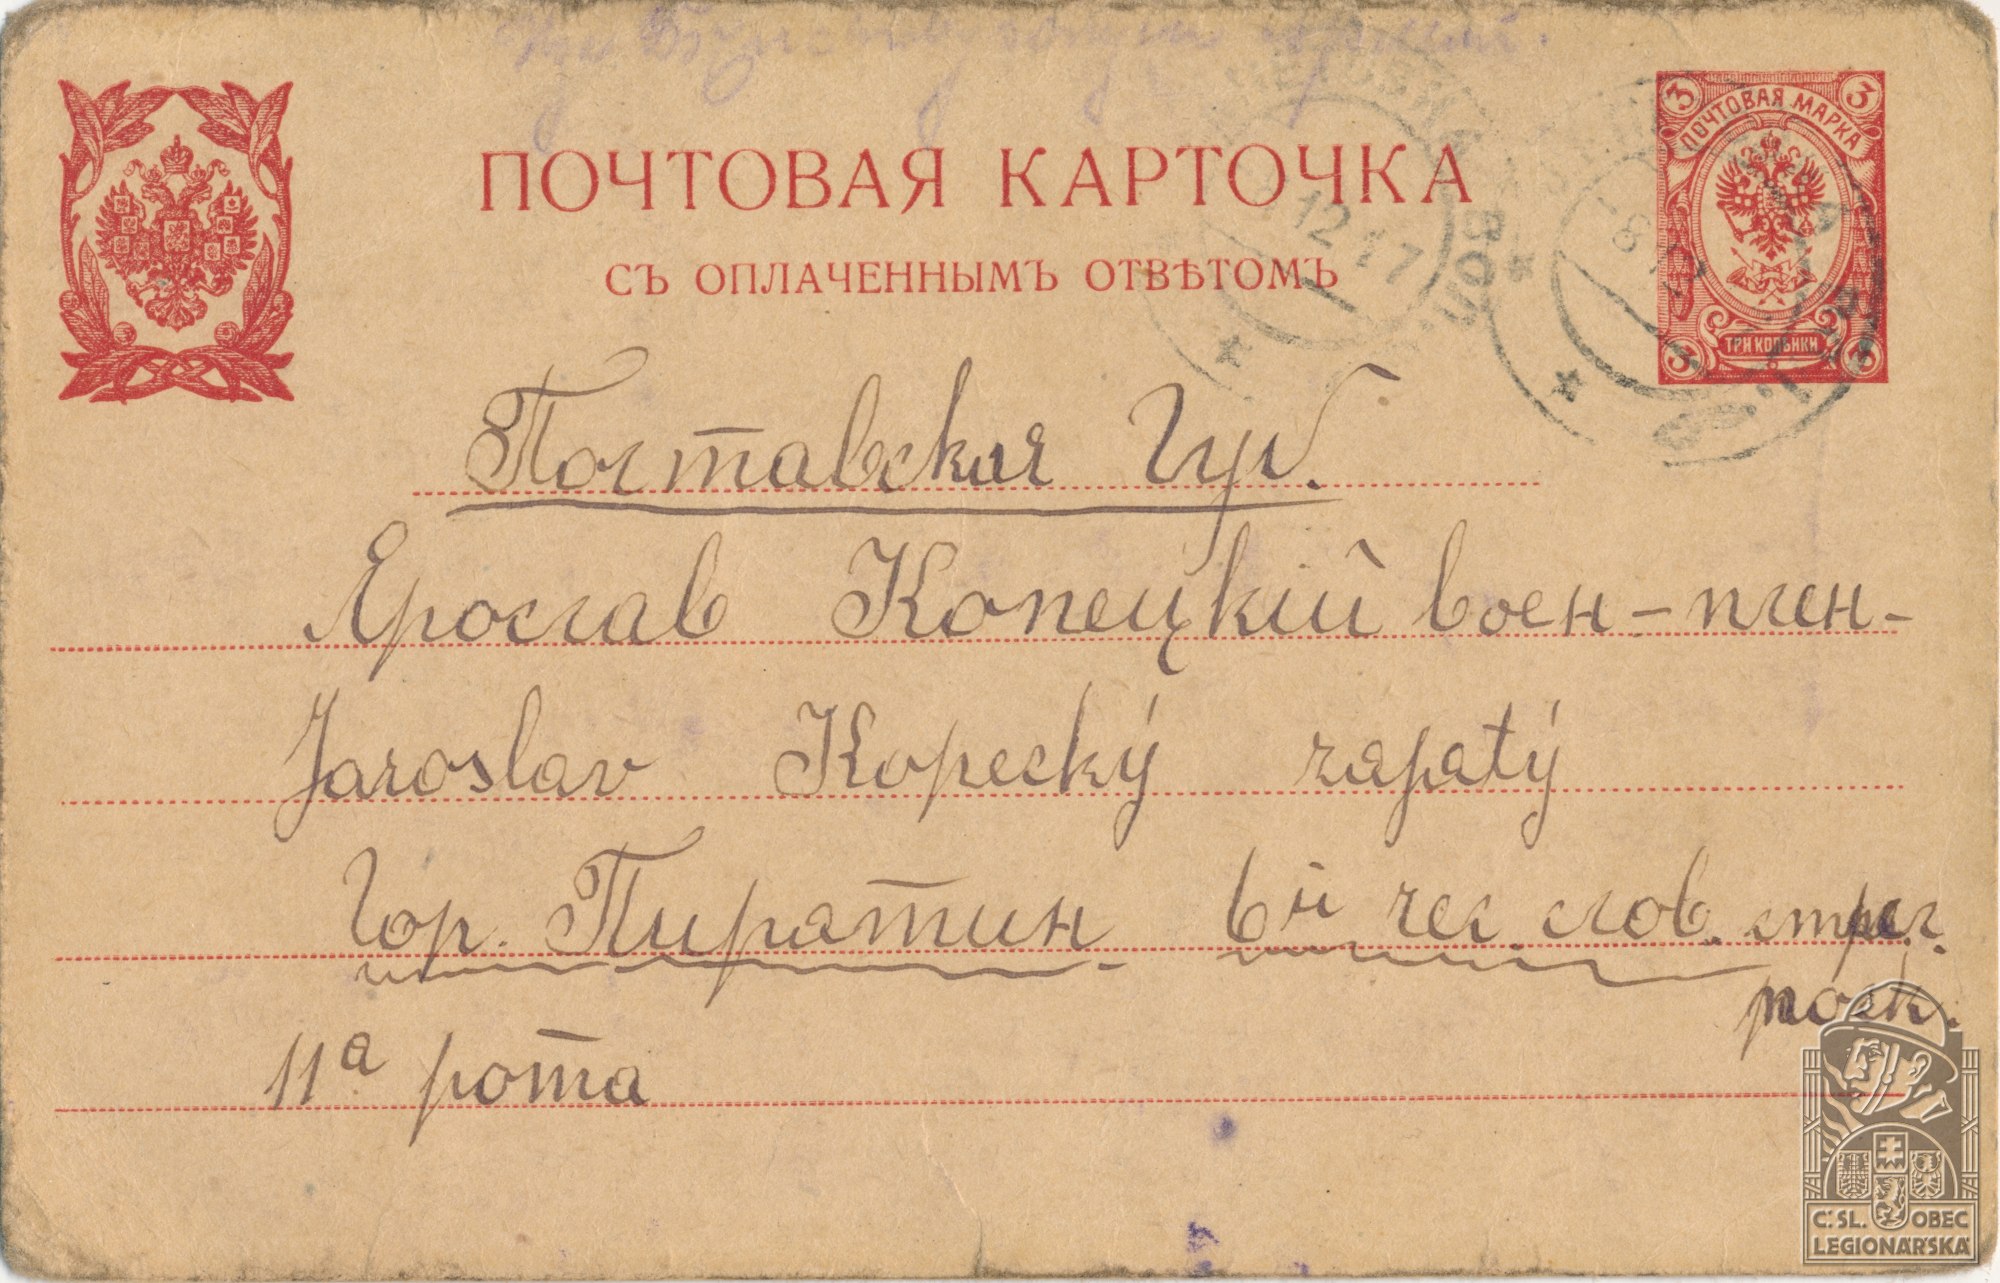 ПОЧТОВАЯ КАРТОЧКА
СЪ ОПЛАЧЕННЫМЪ ОТВѢТОМЪ
3 3
ПОЧТОВАЯ МАРКА
ТРИ КОПѢЙКИ
3 3
12 17
Полтавская Губ.
Ярослав Копецкій воен-плен-
Jaroslav Kopecký zapatý
Гор. Пирятин 6й чес. слов. стрел.
полк.
11а рота
Č. SL. OBEC
LEGIONÁŘSKÁ